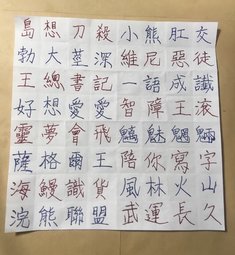 島想刀殺小熊肛交
勃大莖深維尼惡徒
王總書記一語成讖
好想愛愛智障王滾
靈夢會飛魑魅魍魎
薩格爾王陪你寫字
海鰻識貨風林火山
浣熊聯盟武運長久